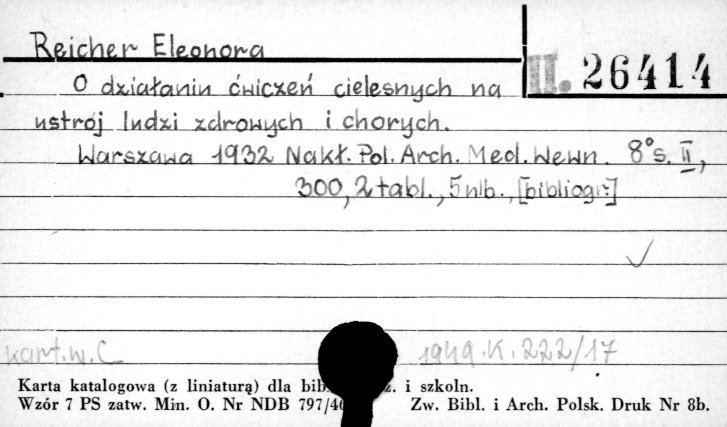 Reicher Eleonora
II. 26414
O działaniu ćwiczeń cielesnych na
ustrój ludzi zdrowych i chorych.
Warszawa 1932 Nakł. Pol. Arch. Med. Wewn. 8° s. II,
300, 2 tabl., 5 nlb., [bibliogr.]
kart. w. C 1949.K.222/17
Karta katalogowa (z liniaturą) dla z. i szkoln.
Wzór 7 PS zatw. Min. O. Nr NDB Zw. Bibl. i Arch. Polsk. Druk Nr 8b.